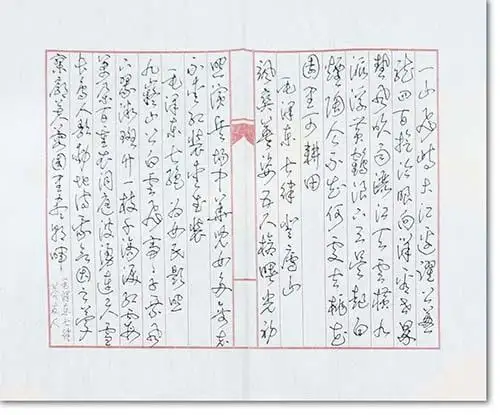 一山飞峙大江边跃上葱
茏四百旋冷眼向洋看世界
热风吹雨洒江天云横九
派浮黄鹤浪下三吴起白
烟陶令不知何处去桃花
园里可耕田
毛泽东七律登庐山
飒爽英姿五尺枪曙光初
照演兵场中华儿女多奇志
不爱红装爱武装
毛泽东七绝为女民兵题照
九嶷山上白云飞帝子乘风
下翠微斑竹一枝千滴泪红霞
万朵百重衣洞庭波涌连天雪
长岛人歌动地诗我欲因之梦
寥廓芙蓉国里尽朝晖
毛泽东七律
答友人